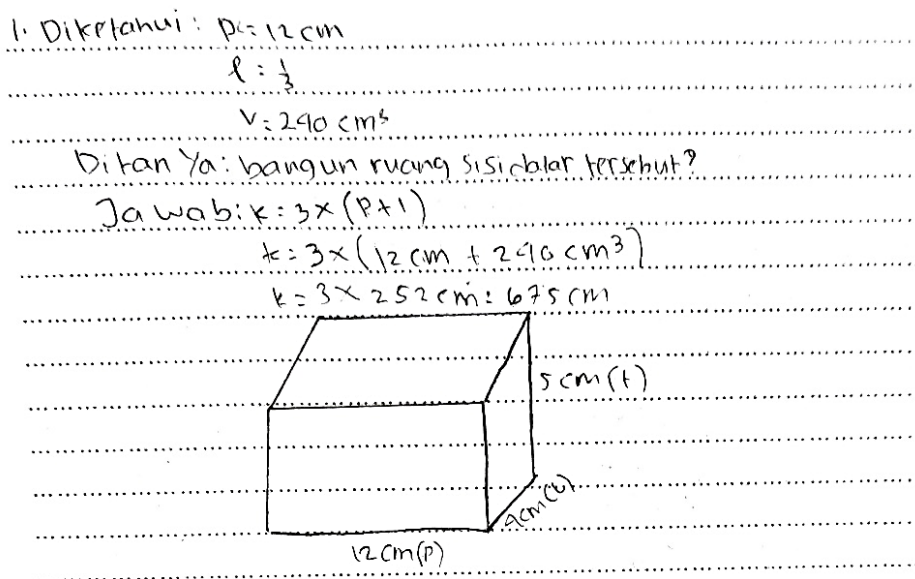 1. Diketahui : p = 12 cm
l = 1/3
V = 240 cm³
Ditanya : bangun ruang sisi datar tersebut?
Jawab : k = 3 x (p+1)
k = 3 x (12 cm + 240 cm³)
k = 3 x 252 cm = 675 cm
5 cm (t)
4cm(l)
12 cm(p)